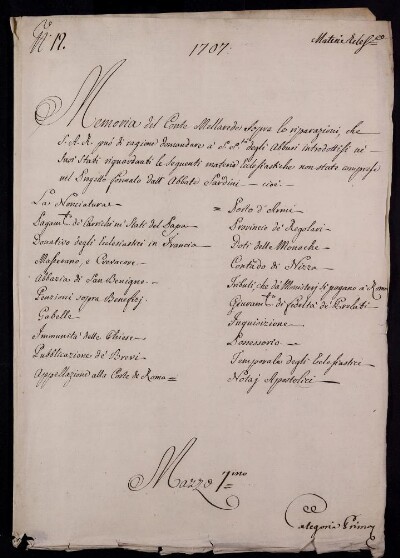 N.º 12.
1707.
Materie Eccles.co
Memoria del Conte Mellarede sopra le riparazioni, che
S.A.R. può di ragione domandare à S.S.tà degli Abusi introdottisi ne'
suoi Stati riguardanti le seguenti materie Ecclesiastiche non state comprese
nel Progetto formato dall' Abbate Sardini — cioè —
La Nonciatura —
Pagam.ti di Carichi ne' Stati del Papa —
Donativo degli Ecclesiastici in Francia —
Masserano, e Crevacore —
Abbazia di San Benigno —
Penzioni sopra Beneficj —
Gabelle —
Immunità delle Chiese —
Pubblicazione de' Brevi —
Appellazione alla Corte di Roma =
= Porto d'Armi —
Provincie de' Regolari —
Doti delle Monache —
Contado di Nizza —
Tributi, che da' Monisterj si pagano à Roma
Giuram.to di fedeltà de' Prelati —
Inquisizione —
Possessorio —
Temporale degli Ecclesiastici —
Notaj Apostolici —
Mazzo 7.mo
Categoria Prima